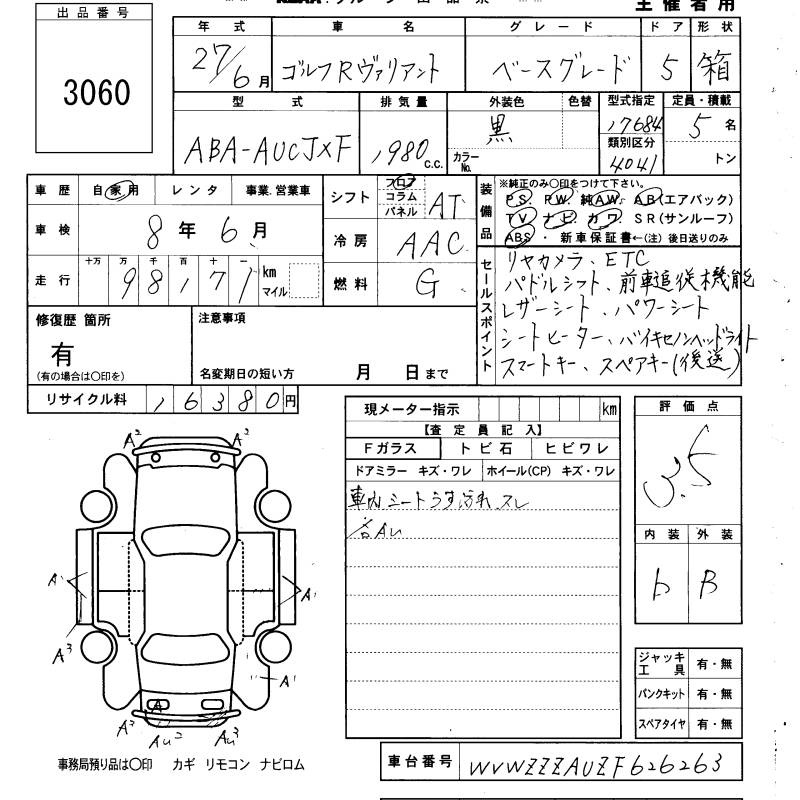 主催者用
出品番号
3060
年式 車名 グレード ドア 形状
27/6月 ゴルフRヴァリアント ベースグレード 5 箱
型式 排気量 外装色 色替 型式指定 定員・積載
ABA-AUCJXF 1980c.c. 黒 カラーNo. 17684 5名
類別区分
4041 トン
車歴 自家用 レンタ 事業.営業車
車検 8年6月
走行 十万 万 千 百 十 一
98171 km
マイル
シフト フロア コラム パネル AT
冷房 AAC
燃料 G
装備品 ※純正のみ〇印をつけて下さい。
PS PW 純AW AB(エアバック)
TV ナビ カワ SR(サンルーフ)
ABS ・ 新車保証書←(注) 後日送りのみ
セールスポイント
リヤカメラ、ETC
パドルシフト、前車追従機能
レザーシート、パワーシート
シートヒーター、バイキセノンヘッドライト
スマートキー、スペアキー(後送)
修復歴 箇所
有
(有の場合は〇印を)
注意事項
名変期日の短い方 月 日まで
リサイクル料 16380円
現メーター指示 km
【査定員記入】
Fガラス トビ石 ヒビワレ
ドアミラー キズ・ワレ ホイール(CP) キズ・ワレ
車内シートうす汚れ スレ
評価点
3.5
内装 外装
b B
A2 A2
A1 A1
A3
A1
A
A2 AU2 AU3
ジャッキ工具 有・無
パンクキット 有・無
スペアタイヤ 有・無
事務局預り品は〇印 カギ リモコン ナビロム
車台番号 WVWZZZAUZFG26263